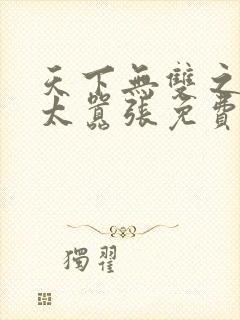 天下無雙之
太囂張免費
獨翟